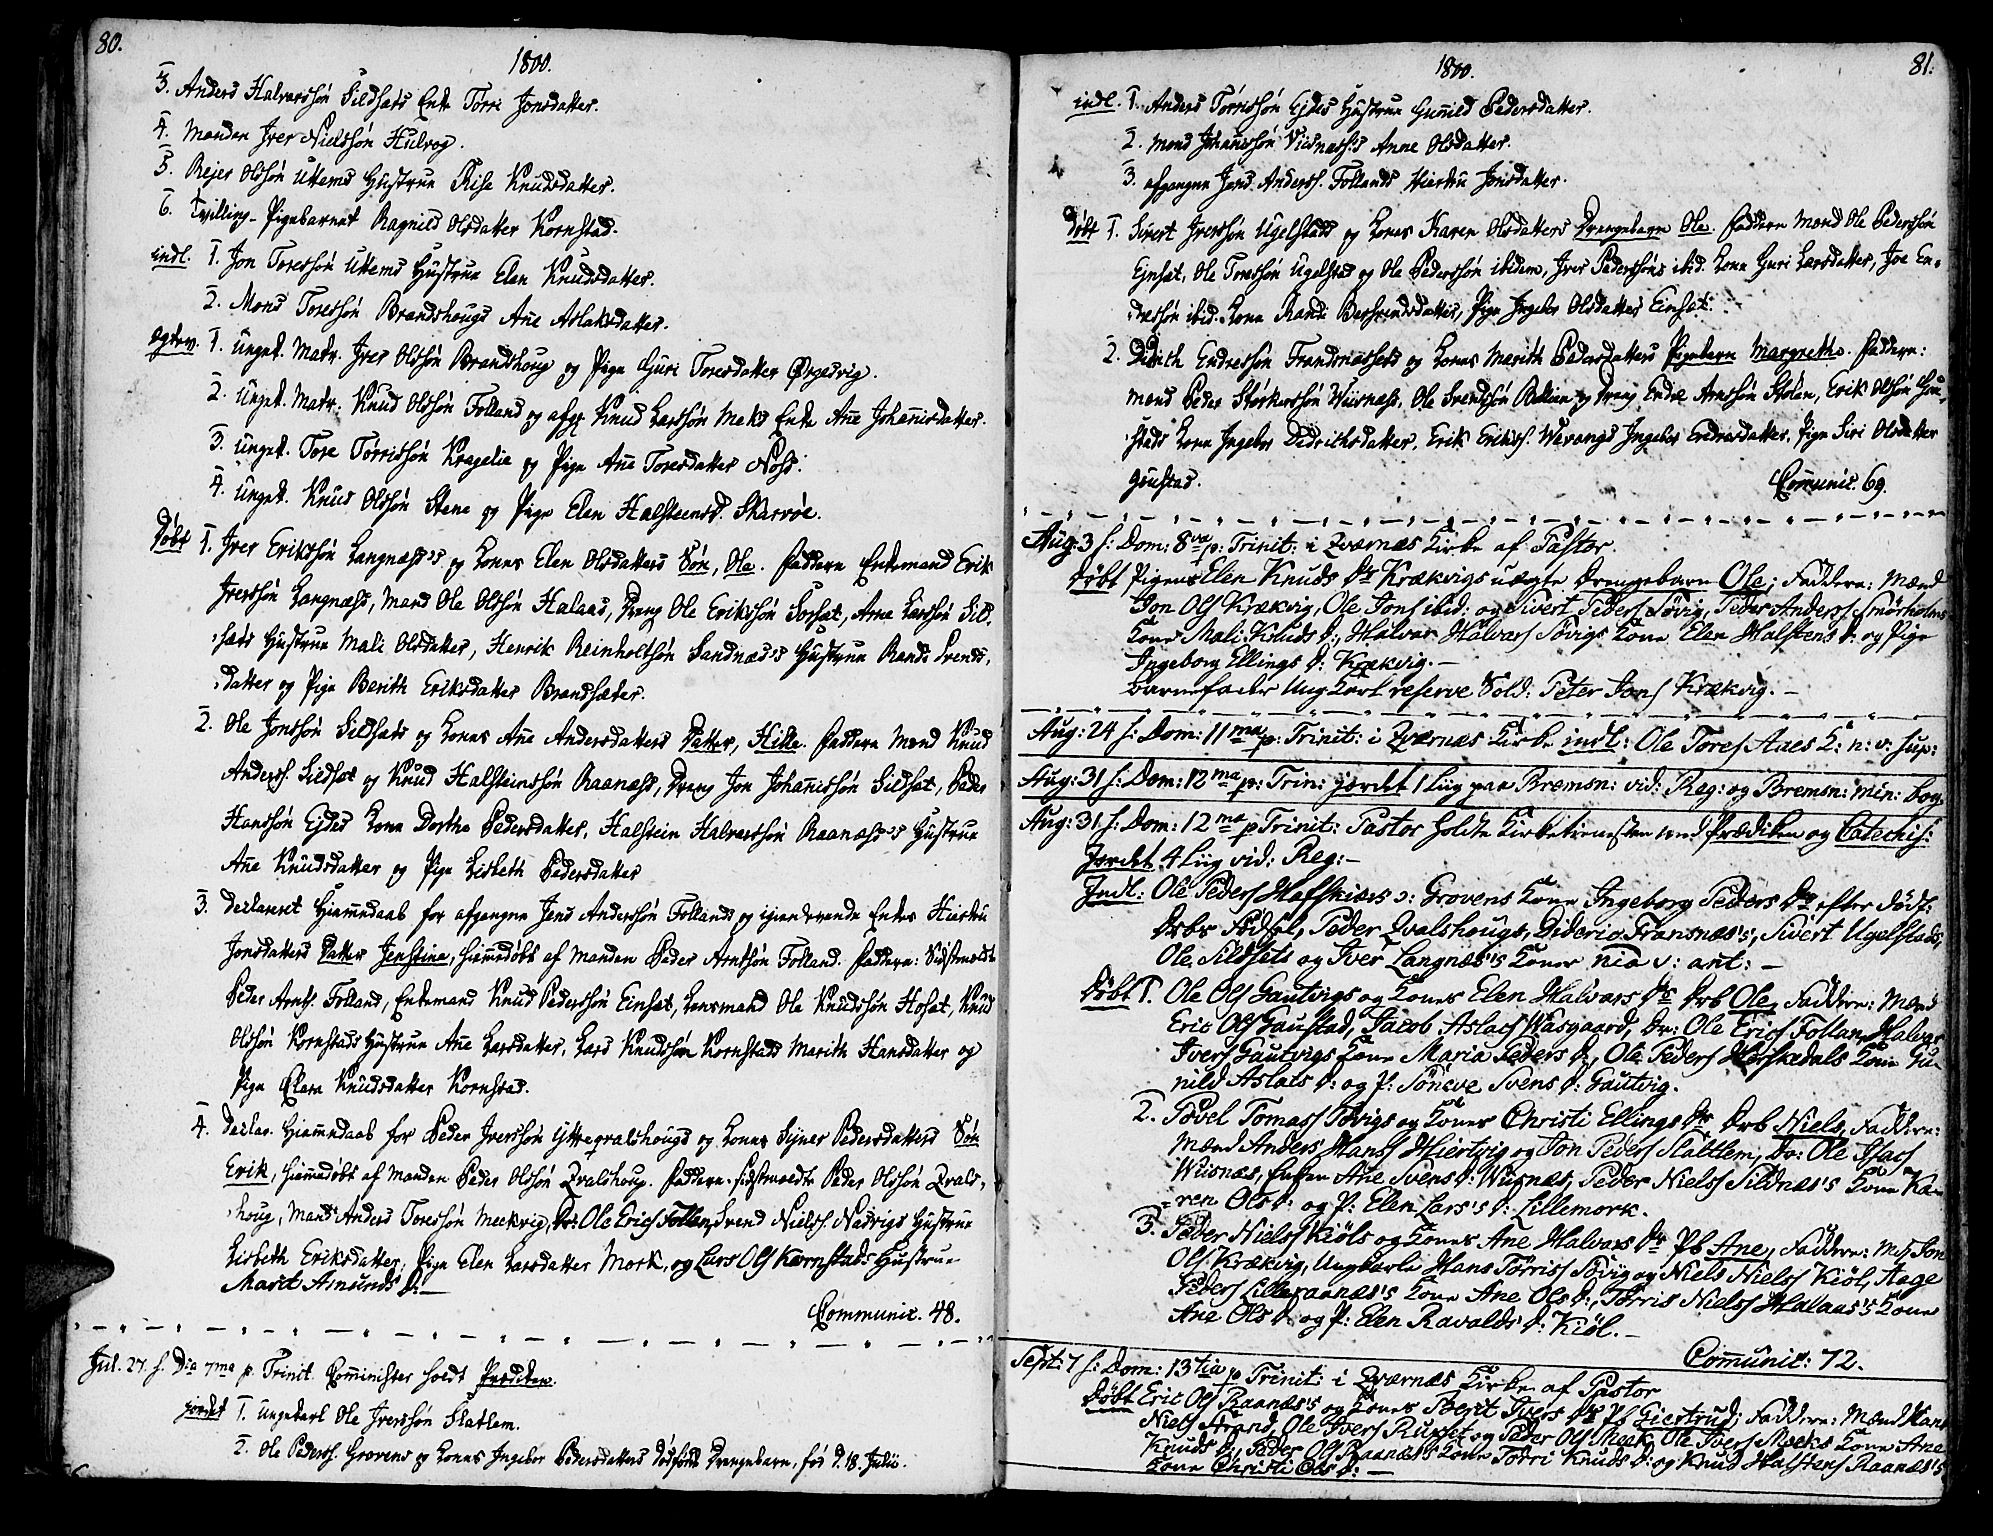 80.
1800.
3. Anders Halvorssøn Sildsæts Enke Torri Jonsdatter.
4. Manden Iver Nielssøn Hulvog.
5. Rejer Olssøn Uttems Hustrue Rise Knudsdatter.
6. Tvilling-Pigebarnet Ragnild Olsdatter Kornstad.
indl. 1. Jon Toressøn Uttems Hustrue Elen Knudsdatter.
2. Mons Toressøn Brandshougs Añe Aslaksdatter.
Egtev. 1. Ungek. Matr. Iver Olssøn Brandshoug og Pige Guri Toresdatter
2. Ungek. Matr: Knud Olssøn Folland og afg. Knud Larssøn Meks Enke Añe Johañisdatter.
3. Ungek. Tore Torrissøn Kragelie og Pige Añe Toresdatter Noss.
4. Ungek. Knud Olssøn Stene og Pige Elen Halsteensd. Skarvøe.
Døbt 1. Iver Erikssøn Langnæss's og Kones Elen Olsdatters Søn, Ole. Faddere Enkemand Erik
Iverssøn Langnæss, Mand Ole Olssøn Halaas, Dreng Ole Erikssøn Sorsæt, Arne Larssøn Sild-
sæts Hustrue Mali Olsdatter, Henrik Reinholtssøn Sandnæs's Hustrue Randi Svends-
datter og Pige Berith Eriksdatter Brandsæter.
2. Ole Jonssøn Sildsæts og Kones Añe Andersdatters Datter, Hilke. Faddere Mand Knud
Anderss. Sildsæt og Knud Halsteinssøn Raanæss, Dreng Jon Johañissøn Sildsæt, Peder
Hanssøn Ejdes Kone Dorthe Pedersdatter, Halstein Halvorssøn Raanæss's Hustrue
Añe Knudsdatter og Pige Lisbeth Pedersdatter
3. Declareret Hiemmedaab for afgangne Jens Anderssøn Follands og igienlevende Enkes Hierstru
Jonsdatters Datter Jenstine, hiemmedøbt af Manden Peder Arntssøn Folland. Faddere: Sidstmeldte
Peder Arnts. Folland, Enkemand Knud Pederssøn Einsæt, Lensmand Ole Knudssøn Hosæt, Knud
Olssøn Kornstads Hustrue Añe Larsdatter, Lars Knudssøn Kornstads Marith Hansdatter og
Pige Clara Knudsdatter Kornstad.
4. Declar. Hiemmedaab for Peder Iverssøn Yttreqvalshougs og Kones Signes Pedersdatters Søn
Erik, hiemmedøbt af Manden Peder Olssøn Qvalshoug. Faddere: sidstmeldte Peder Olssøn Qvals-
houg, Mand Anders Toressøn Meekvig, Dr: Ole Erics Follan, Svend Nielss. Nasvigs Hustrue
Lisbeth Eriksdatter, Pige Elen Larsdatter Mork, og Lars Ols Kornstads Hustrue
Marit Amunds D:—
Communic. 48.
Jul. 27. s. Dca 7ma p. Trinit. Comminister holdt Prædiken.
jordet 1. Ungekarl Ole Iverssøn Slatlem.
2. Ole Pederss. Grovens og Kones Ingebor Pedersdatters dødfødte Drengebarn, fød d. 18. Julii.
81.
1800.
indl. 1. Anders Torrissøn Ejdes Hustrue Gunnild Pedersdatter.
2. Mons Johañissøn Viisnæss's Anne Olsdatter.
3. afgangne Jens Anderss. Follands Hierstru Jonsdatter.
Døbt 1. Sivert Iverssøn Ugelstads og Kones Karen Olsdatters Drengebarn Ole. Faddere Mand Ole Pederssøn
Einsæt, Ole Toressøn Ugelstad og Ole Pederssøn ibidem, Iver Pederssøns ibid. Kone Guri Larsdatter, Joe En-
dressøn ibid. Kone Randi Bersvendsdatter, Pige Ingebor Olsdatter Einsæt.
2. Didrich Endressøn Trandsnæssets og Kones Marith Pedersdatters Pigebarn Margrethe. Faddere:
Mand Peder Størkerssøn Wiisnæss, Ole Svendssøn og Dreng Endre Arntssøn Stølen, Erik Olssøn Gou-
stads Kone Ingebor Didrichsdatter, Erik Erikss. Wevangs Ingebor Endresdatter, Pige Siri Olsdatter
Goustad.
Communic. 69.
Aug: 3 s: Dom: 8va p: Trinit: i Qværnæs Kirke af Pastor.
Døbt Pigens Elen Knuds Dr Krækvigs uægte Drengebarn Ole; Faddere: Mænd
Jon Ols Krækvig, Ole Jons ibid: og Sivert Peders Søvig, Peder Anderss Smørholms
Kone Mali Knuds D:, Halvor Halvors Søvigs Kone Elen Halstens D: og Pige
Ingeborg Ellings D: Krækvig.—
Barnefader Ung Karl reserve Sold: Peter Jons Krækvig.—
Aug: 24 s: Dom: 11ma p: Trinit: i Qværnæs Kirke indl: Ole Tores Aaes K: n: v: sup:
Aug: 31 s: Dom: 12ma p: Trin: jordet 1 Liig paa Bremsn: vid: Reg: og Bremsn: Min: bog.
Aug: 31 s: Dom: 12ma p Trinit: Pastor holdte Kirketienesten med Prædiken og Catechis:
Jordet 4 Liig vid: Reg:—
Indl: Ole Peders Hafskiærs ɔ: Grovens Kone Ingeborg Peders Dr efter dødf:
Drbs Fødsel, Peder Qvalshougs, Dideric Transnæs's, Sivert Ugelstads,
Ole Sildsets og Iver Langnæs's Koner nia v: ant:—
Døbt 1. Ole Ols Gautvigs og Kones Elen Halvors Dr Drb Ole, Faddere: Mænd
Eric Ols Gaustad, Jacob Aslacs Waagaard, Dr: Ole Erics Follan, Halvor
Ivers Gautvigs Kone Maria Peders D:, Ole Peders Hørskedals Kone Gu-
nild Aslacs D: og P: Sóneve Svens D: Gautvig.
2. Povel Tomass Søvigs og Kones Christi Ellings Dr Drb Niels, Faddere:
Mænd Anders Hanss Hiertvig og Jon Peders Slatlem, Dr: Ole Isacs
Wiisnæs, Enken Ane Svens D: Wiisnæs, Peder Niels Sildnæs's Kone Ka-
ren Ols D: og P: Elen Lars's D: Lillemork.
3. Peder Niels Kiøls og Kones Ane Halvors Dr Pb Ane, Faddere: Md Jon
Ols Krækvig, Ungkarle Hans Torriss Søvig og Niels Niels Kiøl, Aage
Peders Lilleraanæs's Kone Ane Ols D:, Torris Niels Halaas's Kone
Ane Ols D: og P: Elen Ravalds D: Kiøl.—
Communic: 72.
Sept: 7 s: Dom: 13tia p Trinit: i Qværnæs Kirke af Pastor
Døbt Eric Ols Raanæs's og Kones Berit Ivers Dr Pb Giertrud; Faddere: Mænd Hans
Niels Strand, Ole Ivers Rupset og Peder Ols Meek, Ole Ivers Meeks Kone Ane
Knuds D:, Peder Ols Raanæs's Kone Torri Knuds D: og Knud Halstens Raanæs's
Kone Christi Ols D:—